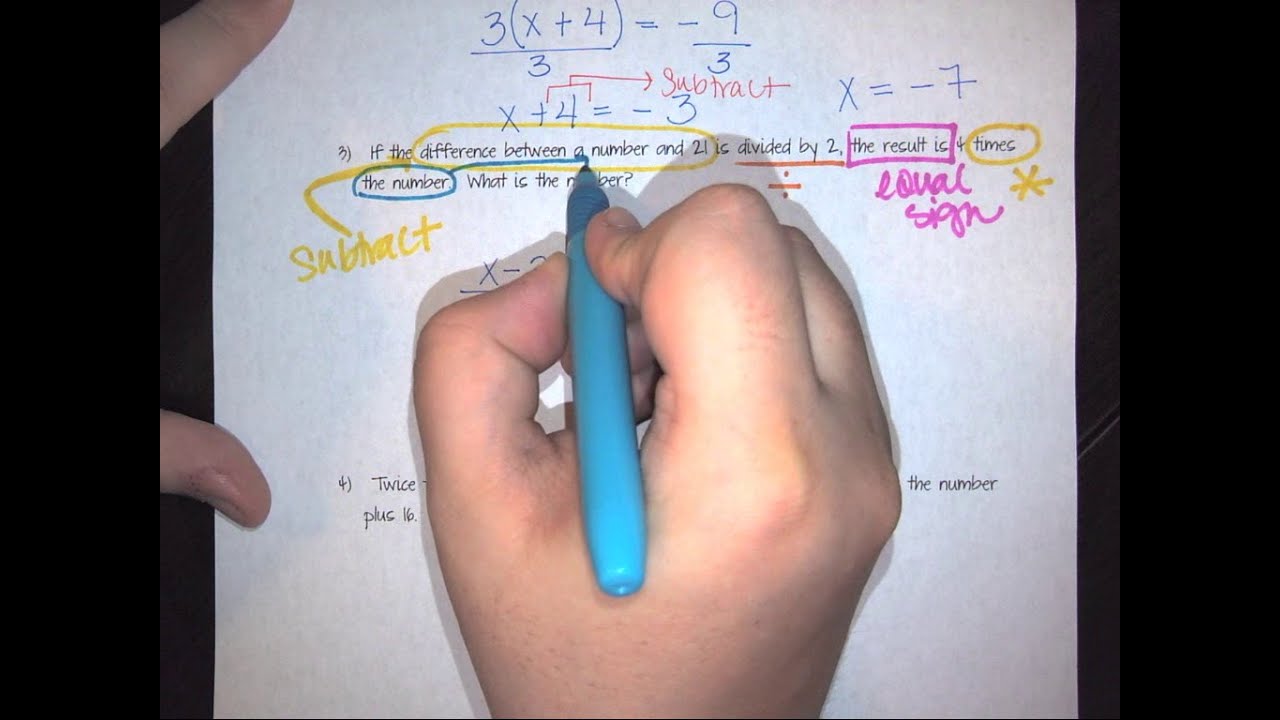 3(x + 4) = - 9
3 3
Subtract
x + 4 = - 3
x = - 7
3) If the difference between a number and 21 is divided by 2, the result is 4 times
the number. What is the number?
÷
equal
sign
*
Subtract
x -
4) Twice
the number
plus 16.